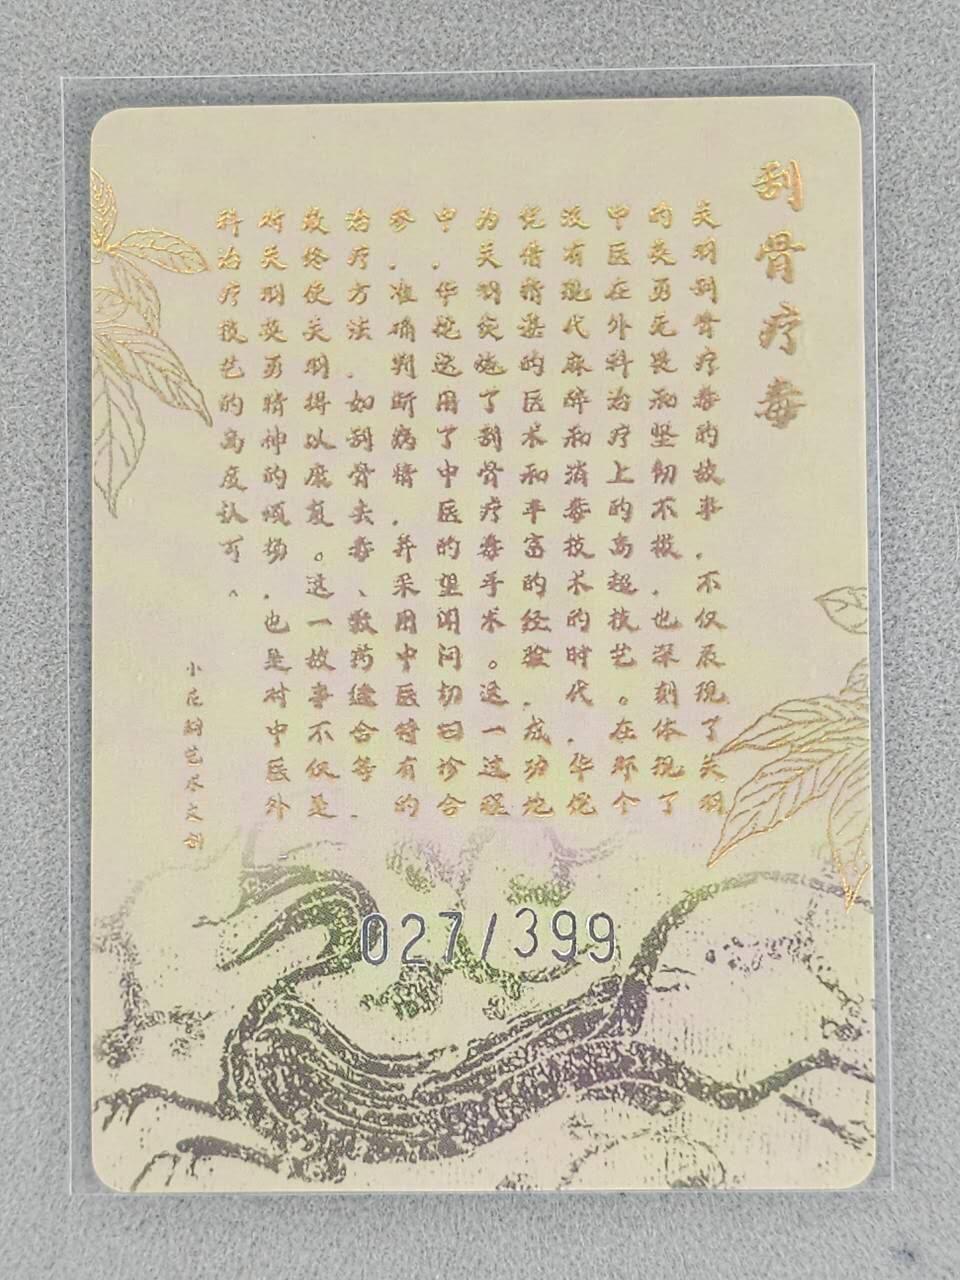 刮骨疗毒
关羽刮骨疗毒的故事，不仅展现了关羽
的英勇无畏和坚韧不拔，也深刻体现了
中医在外科治疗上的高超技艺。在那个
没有现代麻醉和消毒技术的时代，华佗
凭借精湛的医术和丰富的经验，成功地
为关羽实施了刮骨疗毒手术。这一过程
中，华佗运用了中医的望闻问切四诊合
参，准确判断病情，并采用中医特有的
治疗方法，如刮骨去毒、敷药缝合等，
最终使关羽得以康复。这一故事不仅是
对关羽英勇精神的颂扬，也是对中医外
科治疗技艺的高度认可。
027/399